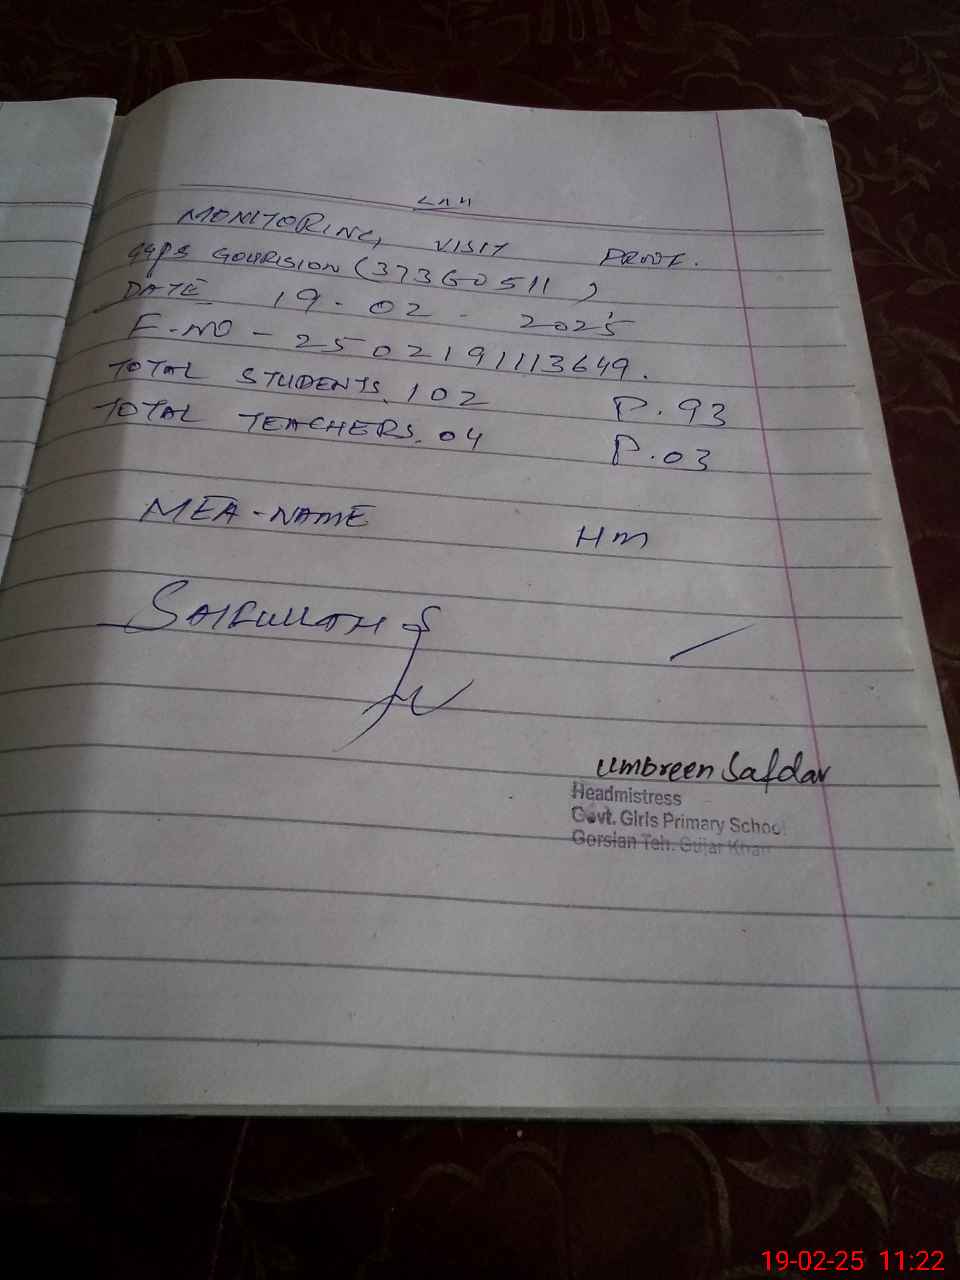 MONITORING VISIT PROOF.
GGPS GOURISION (37360511)
DATE 19-02-2025
E-NO - 2502191113649.
TOTAL STUDENTS. 102 P.93
TOTAL TEACHERS. 04 P.03
MEA-NAME HM
SAIFULLAH
Umbreen Safdar
Headmistress
Govt. Girls Primary School
Gorsian Teh. Gujar Khan
19-02-25 11:22